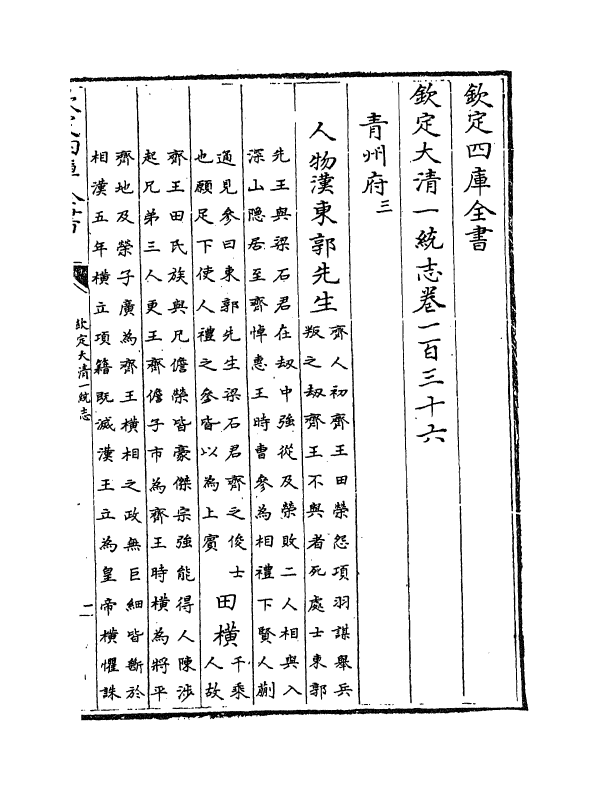 欽定四庫全書
欽定大清一統志卷一百三十六
青州府三
人物漢東郭先生
齊人初齊王田榮怨項羽謀舉兵
叛之刼齊王不與者死處士東郭
先王與梁石君在刼中強從及榮敗二人相與入
深山隠居至齊悼惠王時曹參為相禮下賢人蒯
通見參曰東郭先生梁石君齊之俊士
也願足下使人禮之參皆以為上賓
田横
千乘
人故
齊王田氏族與兄儋榮皆豪傑宗強能得人陳涉
起兄弟三人更王齊儋子市為齊王時横為將平
齊地及榮子廣為齊王横相之政無巨細皆斷於
相漢五年横立項籍既滅漢王立為皇帝横懼誅
欽定大清一統志
二